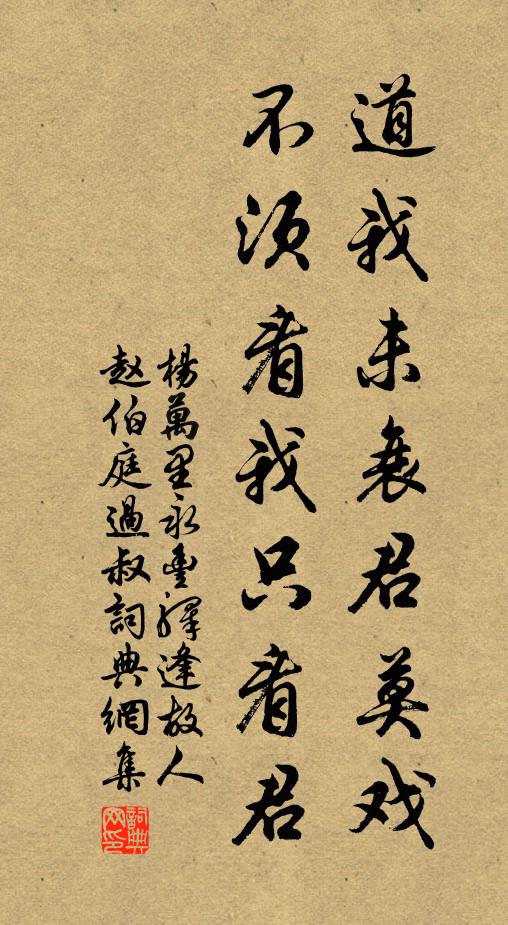 道我未衰君莫戏
不须看我只看君
楊萬里永豊驛逢故人
赵伯庭過叔詞典網集
詞典
网印